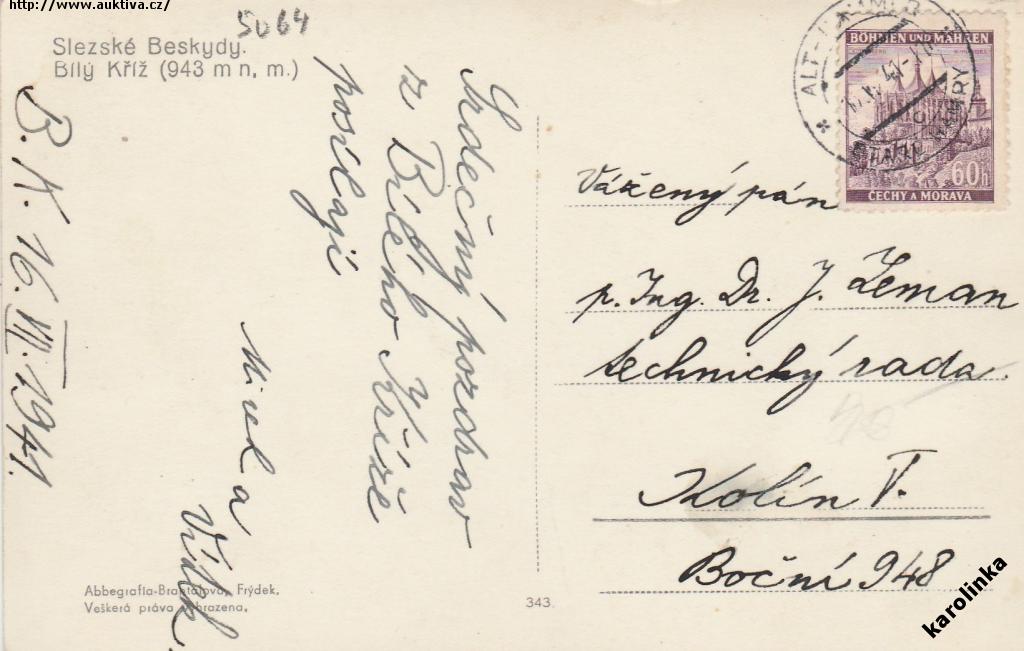 http://www.auktiva.cz/
5064
Slezské Beskydy.
Bílý Kříž (943 m n, m.)
B. K. 16. VII. 1941.
Srdečný pozdrav
z Bílého Kříže
posílají
a
Vítek
Abbegrafia-Brantalova, Frýdek.
Veškerá práva vyhrazena.
343.
BÖHMEN UND MÄHREN
60h
ČECHY A MORAVA
Vážený pán
p. Ing. Dr. J. Zeman
technický rada
Kolín V.
Boční 948
karolinka